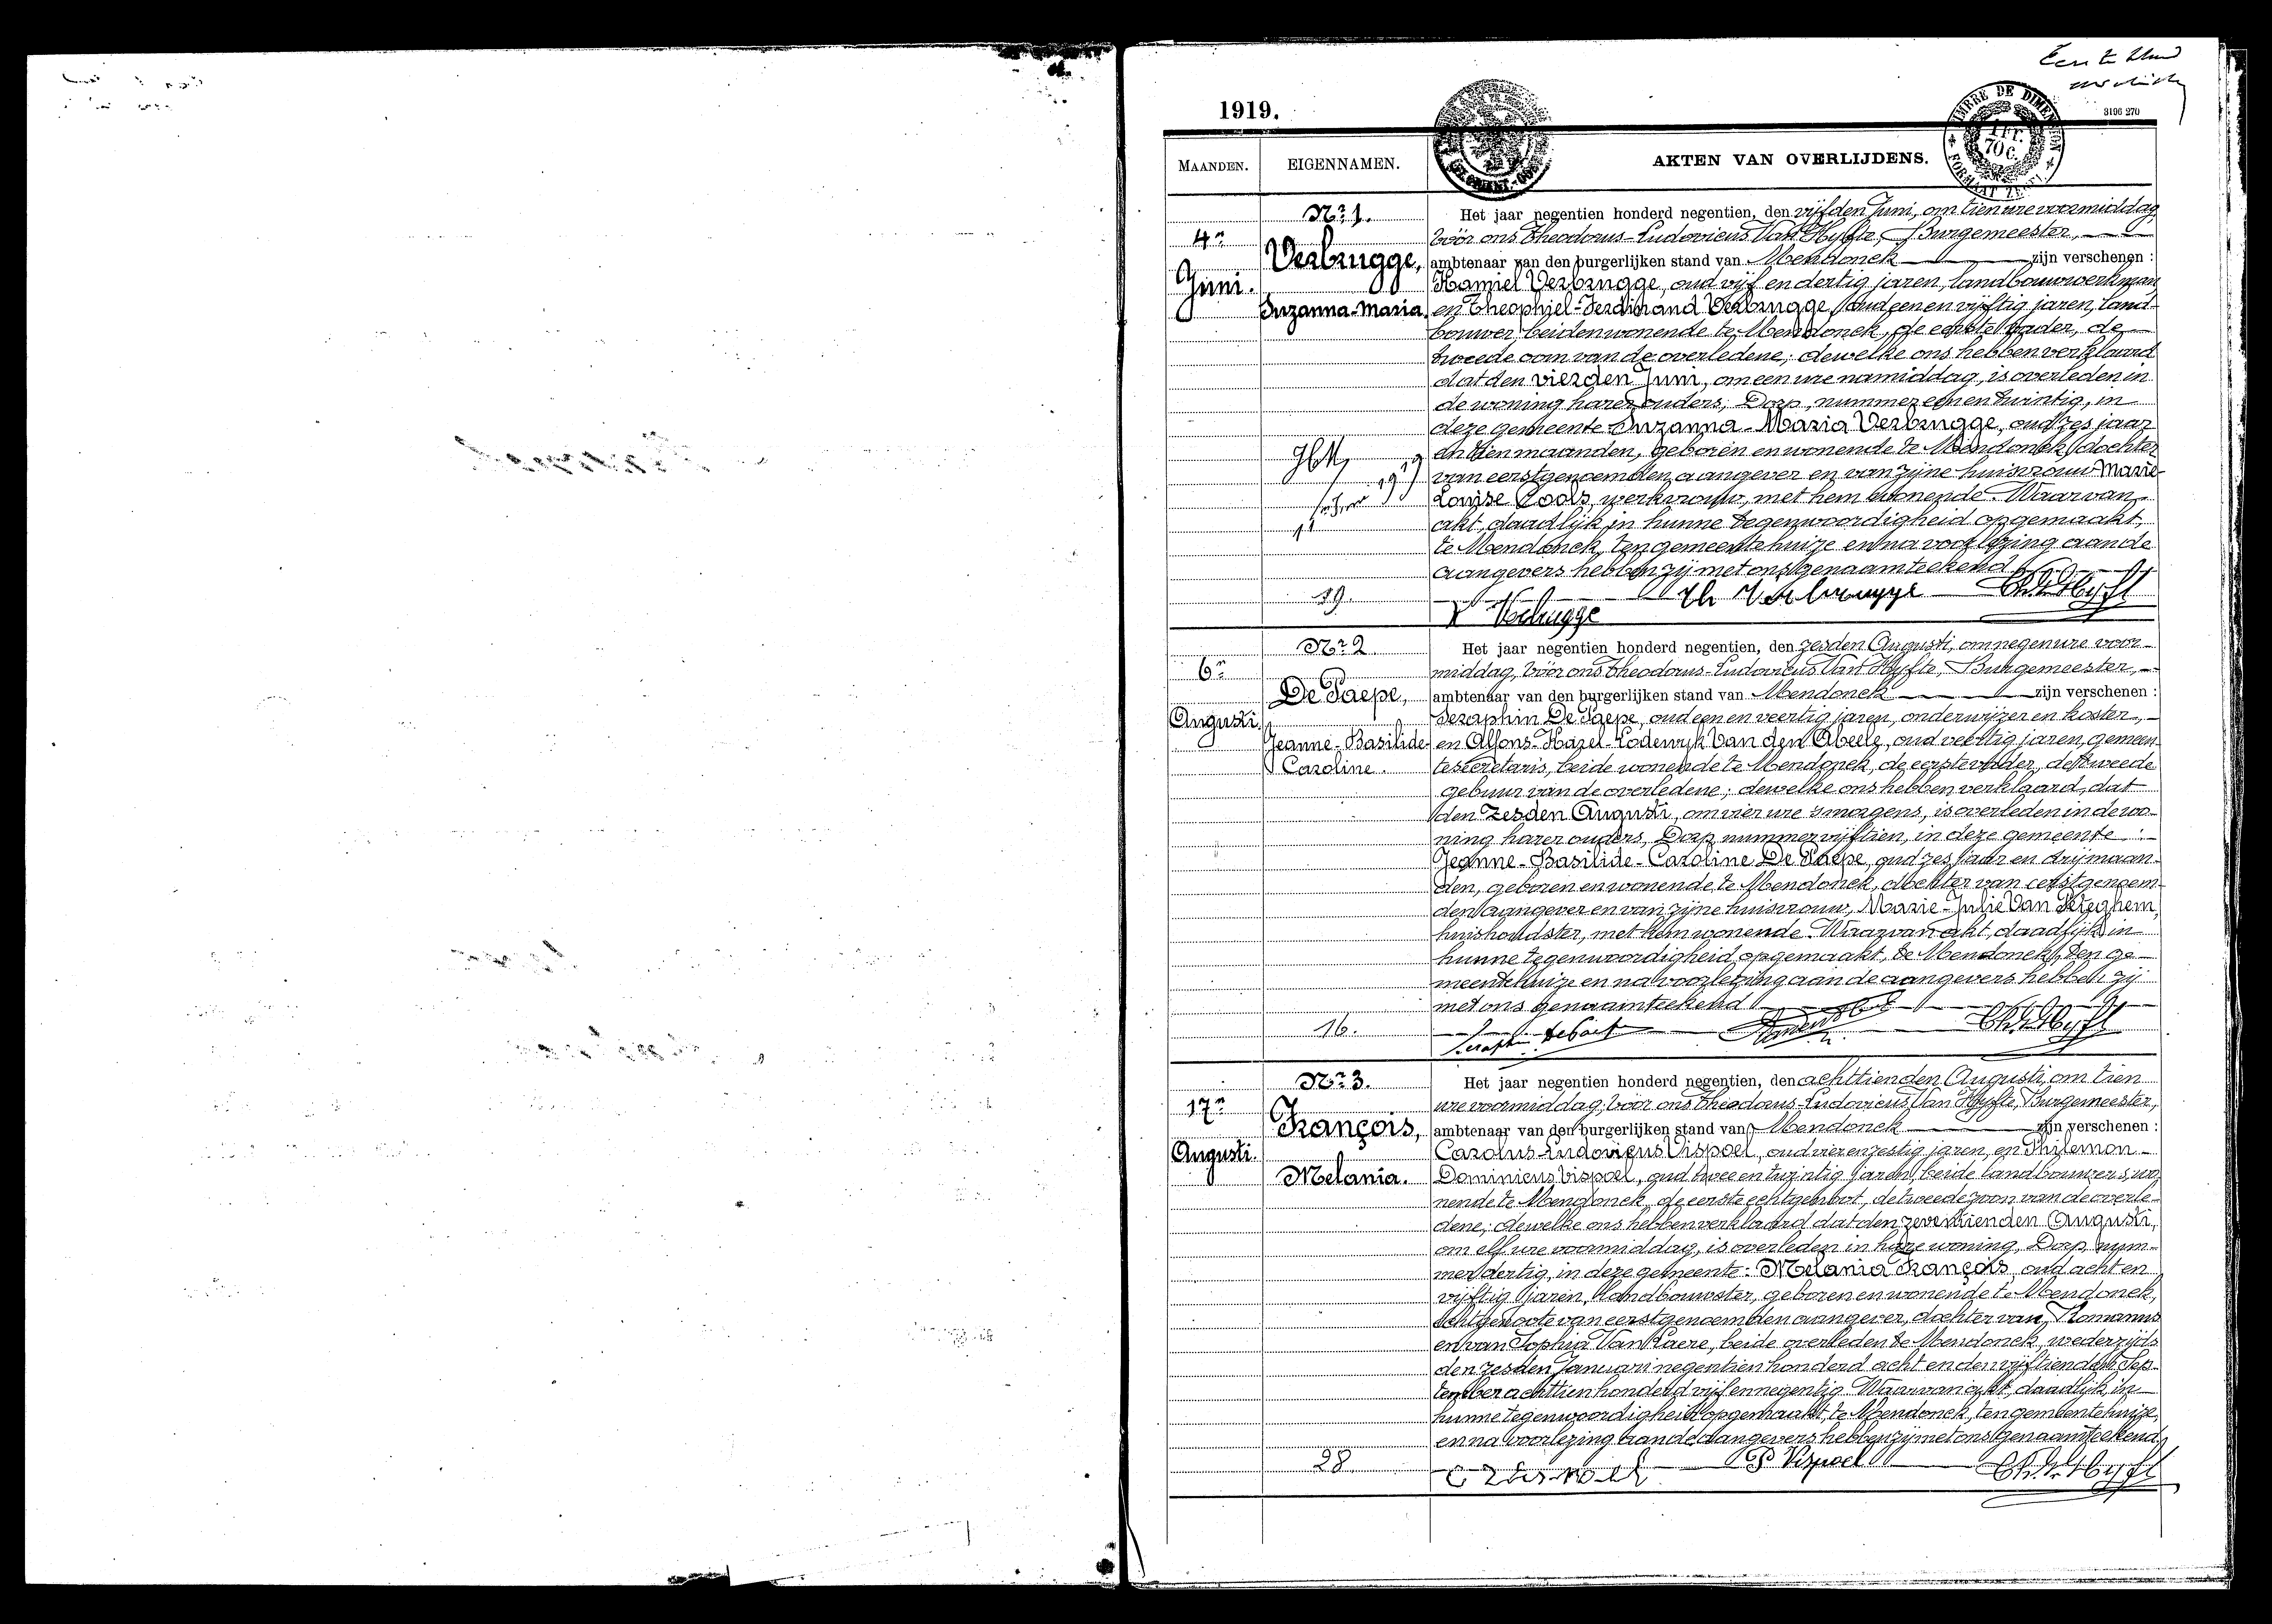 1919.
3196 270
TIMBRE DE DIMENSION
1 FR.
70 C.
FORMAAT ZEGEL
MAANDEN.
EIGENNAMEN.
AKTEN VAN OVERLIJDENS.
Nr 1.
4n
Juni.
Verbrugge,
Suzanna-Maria.
Het jaar negentien honderd negentien, den vijfden Juni, om tien ure voormiddag,
vóór ons Theodorus-Ludovicus Van Hyfte, Burgemeester,
ambtenaar van den burgerlijken stand van Mendonck zijn verschenen :
Kamiel Verbrugge, oud vijf en dertig jaren, landbouwwerkman
en Theophiel-Ferdinand Verbrugge, oud een en vijftig jaren, land-
bouwer, beiden wonende te Mendonck, de eerste vader, de
tweede oom van de overledene; dewelke ons hebben verklaard
dat den vierden Juni, om een ure namiddag, is overleden in
de woning harer ouders, Dorp, nummer een en twintig, in
deze gemeente Suzanna-Maria Verbrugge, oud zes jaar
en tien maanden, geboren en wonende te Mendonck, dochter
van eerstgenoemden aangever en van zijne huisvrouw Marie-
Louise Cools, werkvrouw, met hem wonende. Waarvan
akt, daadlijk in hunne tegenwoordigheid opgemaakt,
te Mendonck, ten gemeentehuize en na voorlezing aan de
aangevers hebben zij met ons genaamteekend
19.
K Verbrugge Th Verbrugge Th. V. Hyfte
Nr 2.
6n
Augusti.
De Paepe,
Jeanne-Basilide-
Caroline.
Het jaar negentien honderd negentien, den zesden Augusti, om negen ure voor-
middag, vóór ons Theodorus-Ludovicus Van Hyfte, Burgemeester,
ambtenaar van den burgerlijken stand van Mendonck zijn verschenen :
Seraphin De Paepe, oud een en veertig jaren, onderwijzer en koster,
en Alfons-Karel-Lodewyk Van den Abeele, oud veertig jaren, gemeen-
tesecretaris, beide wonende te Mendonck, de eerste vader, de tweede
gebuur van de overledene; dewelke ons hebben verklaard, dat
den zesden Augusti, om vier ure 's morgens, is overleden in de wo-
ning harer ouders, Dorp nummer vijftien, in deze gemeente :
Jeanne-Basilide-Caroline De Paepe, oud zes jaar en drij maan-
den, geboren en wonende te Mendonck, dochter van eerstgenoem-
den aangever en van zijne huisvrouw, Marie-Julie Van Peteghem,
huishoudster, met hem wonende. Waarvan akt, daadlijk in
hunne tegenwoordigheid opgemaakt, te Mendonck, ten ge-
meentehuize en na voorlezing aan de aangevers hebben zij
met ons genaamteekend
16.
Seraphin De Paepe Th. V. Hyfte
Nr 3.
17n
Augusti.
François,
Melania.
Het jaar negentien honderd negentien, den achttienden Augusti, om tien
ure voormiddag, vóór ons Theodorus-Ludovicus Van Hyfte, Burgemeester,
ambtenaar van den burgerlijken stand van Mendonck zijn verschenen :
Carolus-Ludovicus Vispoel, oud vier en zestig jaren, en Philemon-
Dominicus Vispoel, oud twee en twintig jaren, beide landbouwers, wo-
nende te Mendonck, de eerste echtgenoot, de tweede zoon van de overle-
dene; dewelke ons hebben verklaard dat den zeventienden Augusti,
om elf ure voormiddag, is overleden in hare woning, Dorp, num-
mer dertig, in deze gemeente: Melania François, oud acht en
vijftig jaren, landbouwster, geboren en wonende te Mendonck,
echtgenoote van eerstgenoemden aangever, dochter van Romanus
en van Sophia Van Laere, beide overleden te Mendonck, wederzijds
den zesden Januari negentien honderd acht en den vijftienden Sep-
tember achttien honderd vijf en negentig. Waarvan akt, daadlijk in
hunne tegenwoordigheid opgemaakt, te Mendonck, ten gemeentehuize,
en na voorlezing aan de aangevers hebben zij met ons genaamteekend.
28.
C Vispoel P Vispoel Th. V. Hyfte